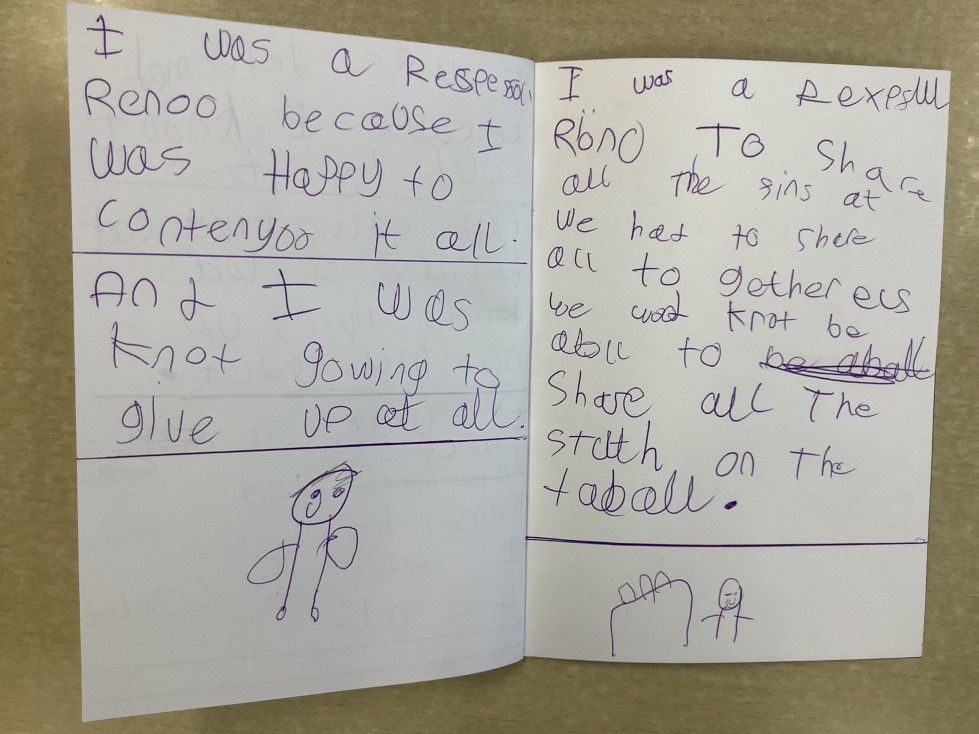 I was a Respessol
Renoo because I
was Happy to
contenyoo it all.
And I was
knot gowing to
give up at all.
I was a Rexpslll
Rono To share
all The sins at
We had to shere
all to gether ecs
we wod knot be
aboll to be aball
Share all The
stuth on The
taball.